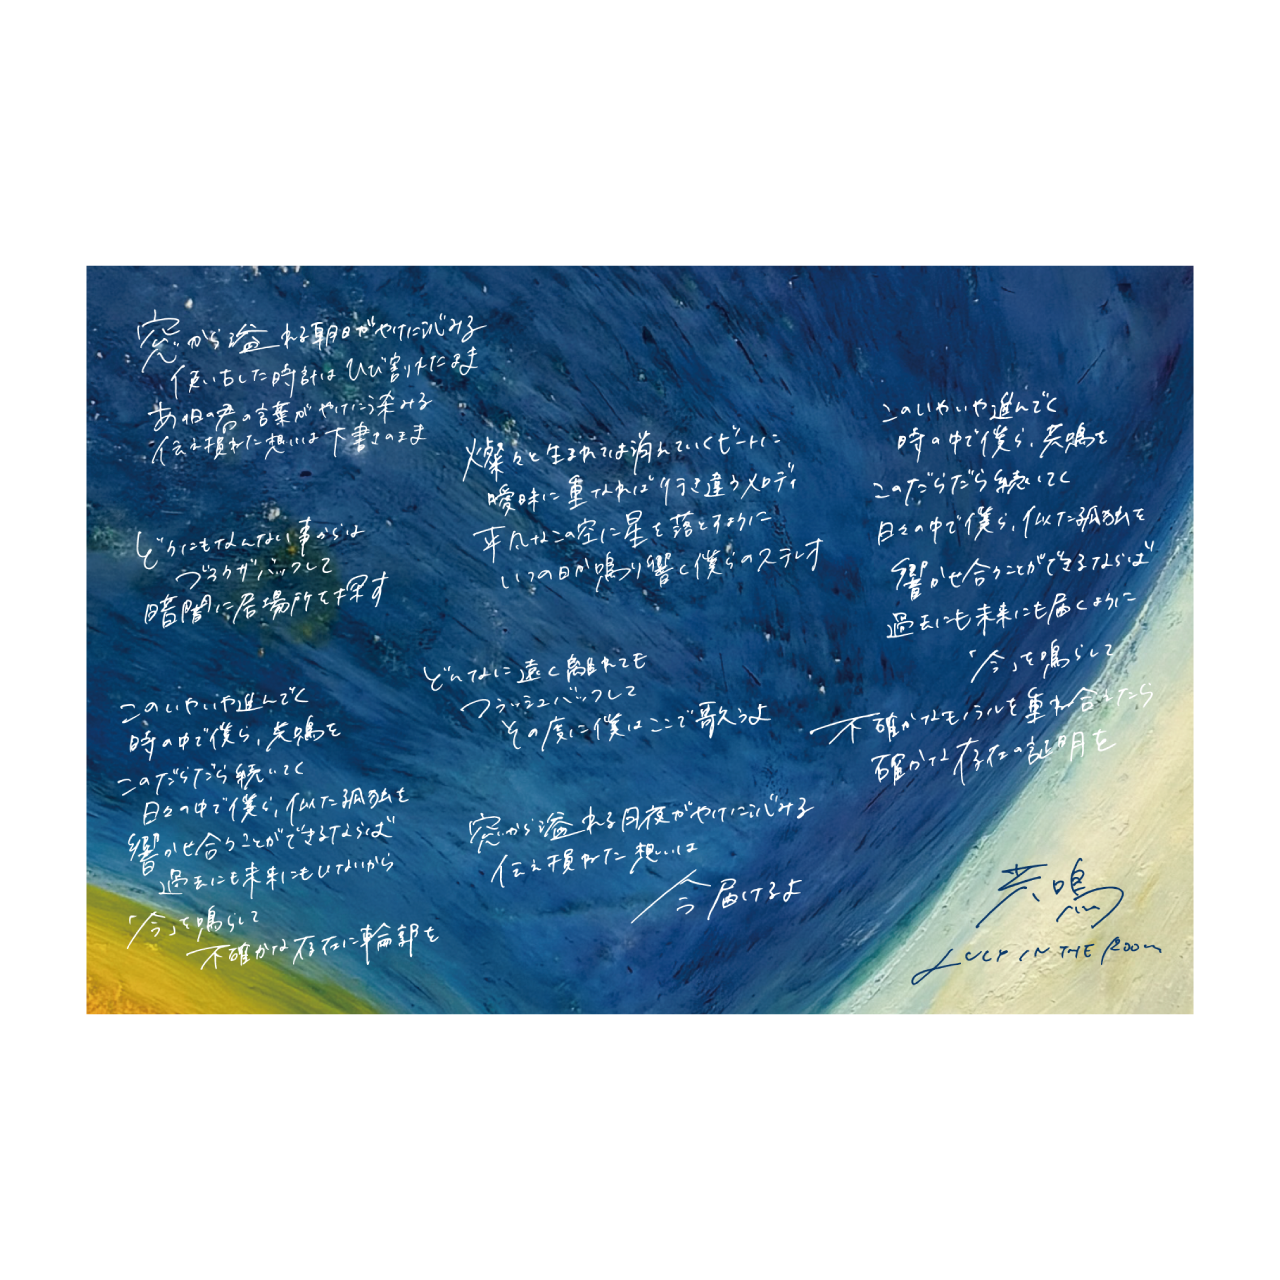 窓から溢れる朝日がやけに沁みる
使い古した時計はひび割れたまま
あの日の君の言葉がやけにう染みる
伝え損ねた想いは下書きのまま
どうにもなんない事からは
バックして
暗闇に居場所を探す
このいやいや進んでく
時の中で僕ら、共鳴を
このだらだら続いてく
日々の中で僕ら、似た孤独を
響かせ合うことができるならば
過去にも未来にもひないから
「今」を鳴らして
不確かな存在に輪郭を
燦々と生まれては消えていくビートに
曖昧に重なれば行き違うメロディ
平凡なこの空に星を落とすように
いつの日か鳴り響く僕らのステレオ
どんなに遠く離れても
フラッシュバックして
その度に僕はここで歌うよ
窓から溢れる月夜がやけに沁みる
伝え損ねた想いは
今届けるよ
このいやいや進んでく
時の中で僕ら、共鳴を
このだらだら続いてく
日々の中で僕ら、似た孤独を
響かせ合うことができるならば
過去にも未来にも届くように
「今」を鳴らして
不確かなモノラルを重ね合えたら
確かな存在の証明を
共鳴
LUCY IN THE ROOM